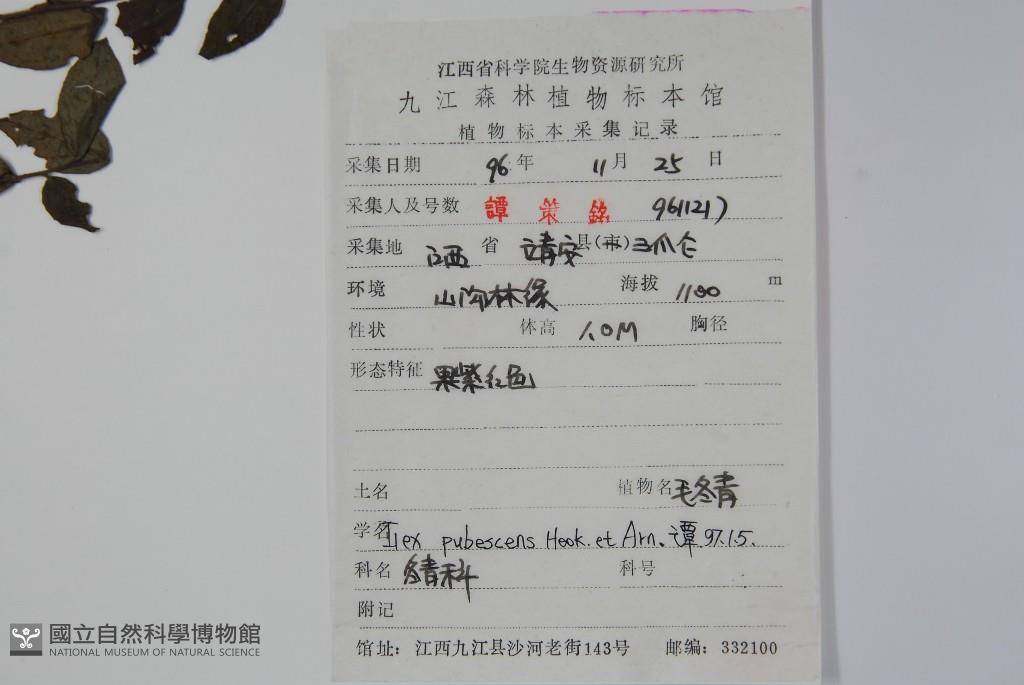 江西省科学院生物资源研究所
九江森林植物标本馆
植物标本采集记录
采集日期 96年 11月 25日
采集人及号数 譚策銘 9611217
采集地 江西 省 靖安 县(市) 三爪仑
环境 山沟林缘 海拔 1100 m
性状 体高 1.0M 胸径
形态特征 果紫红色
土名 植物名 毛冬青
学名 Ilex pubescens Hook. et Arn. 谭 97.1.5.
科名 冬青科 科号
附记
馆址：江西九江县沙河老街143号 邮编：332100
國立自然科學博物館
NATIONAL MUSEUM OF NATURAL SCIENCE